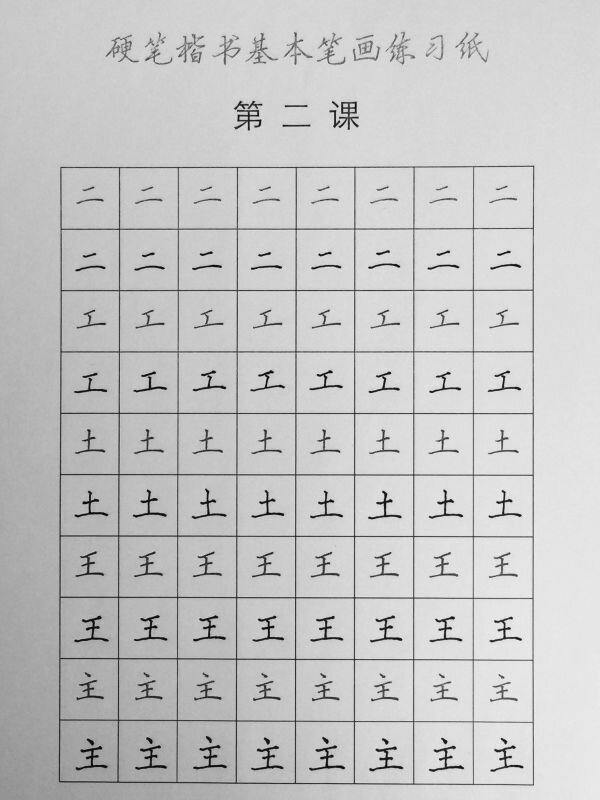 硬笔楷书基本笔画练习纸
第二课
二二二二二二二二
二二二二二二二二
工工工工工工工工
工工工工工工工工
土土土土土土土土
土土土土土土土土
王王王王王王王王
王王王王王王王王
主主主主主主主主
主主主主主主主主